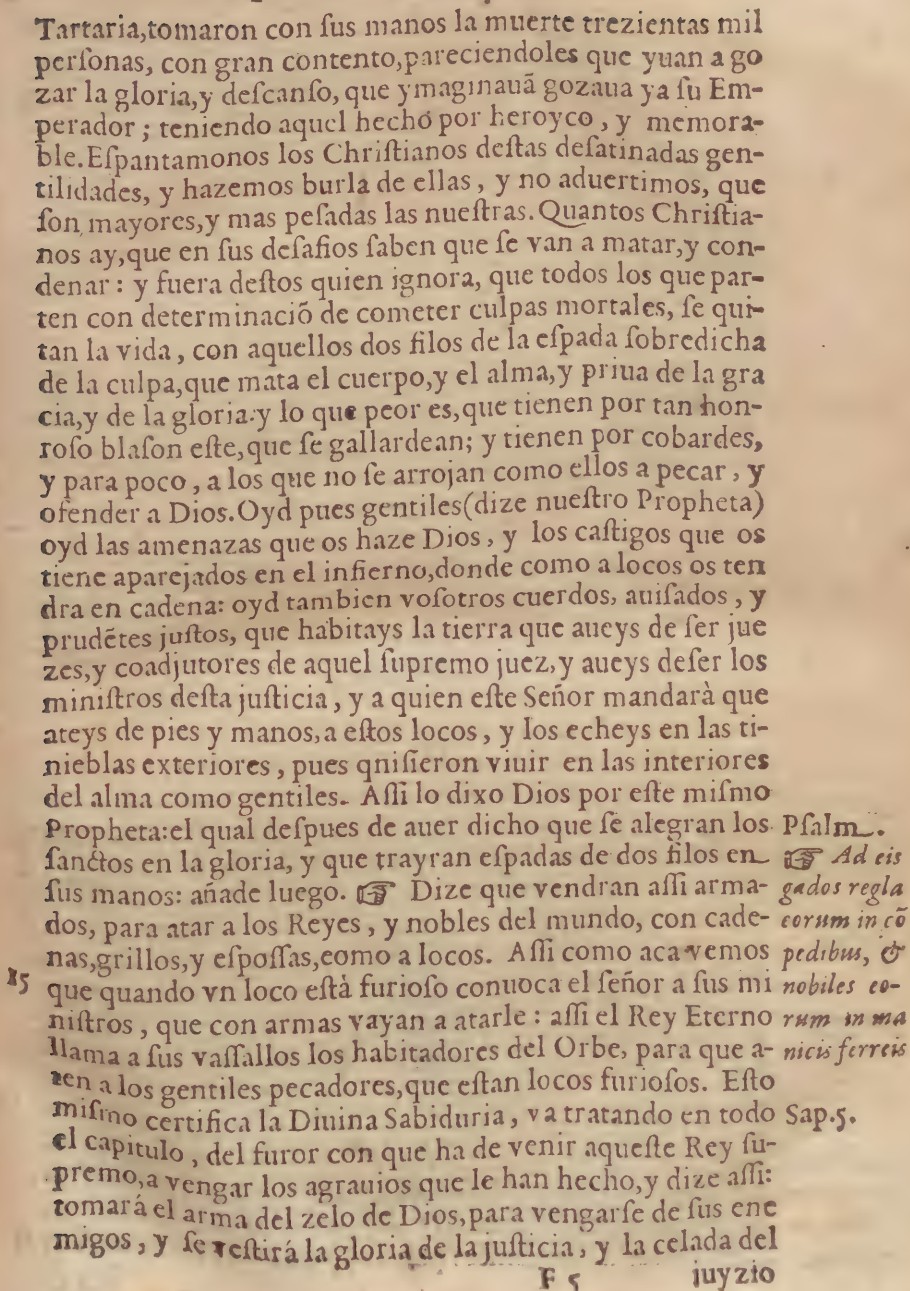 Tartaria,tomaron con ſus manos la muerte trezientas mil
perſonas, con gran contento,pareciendoles que yuan a go
zar la gloria,y deſcanſo, que ymaginauã gozaua ya ſu Em-
perador ; teniendo aquel hecho por heroyco , y memora-
ble.Eſpantamonos los Chriſtianos deſtas deſatinadas gen-
tilidades, y hazemos burla de ellas , y no aduertimos, que
ſon mayores,y mas peſadas las nueſtras.Quantos Chriſtia-
nos ay,que en ſus deſafios ſaben que ſe van a matar,y con-
denar : y fuera deſtos quien ignora, que todos los que par-
ten con determinaciõ de cometer culpas mortales, ſe qui-
tan la vida , con aquellos dos filos de la eſpada ſobredicha
de la culpa,que mata el cuerpo,y el alma,y priua de la gra
cia,y de la gloria.y lo que peor es,que tienen por tan hon-
roſo blaſon eſte,que ſe gallardean; y tienen por cobardes,
y para poco , a los que no ſe arrojan como ellos a pecar , y
ofender a Dios.Oyd pues gentiles(dize nueſtro Propheta)
oyd las amenazas que os haze Dios , y los caſtigos que os
tiene aparejados en el infierno,donde como a locos os ten
dra en cadena: oyd tambien voſotros cuerdos, auiſados , y
prudẽtes juſtos, que habitays la tierra que aueys de ſer jue
zes,y coadjutores de aquel ſupremo juez,y aueys deſer los
miniſtros deſta juſticia , y a quien eſte Señor mandarà que
ateys de pies y manos,a eſtos locos , y los echeys en las ti-
nieblas exteriores , pues qniſieron viuir en las interiores
del alma como gentiles. Aſſi lo dixo Dios por eſte miſmo
Propheta:el qual deſpues de auer dicho que ſe alegran los Pſalm.
ſanctos en la gloria, y que trayran eſpadas de dos filos en ☞ Ad eis
ſus manos: añade luego. ☞ Dize que vendran aſſi arma- gados regla
dos, para atar a los Reyes , y nobles del mundo, con cade- eorum in cõ
nas,grillos,y eſpoſſas,como a locos. Aſſi como aca vemos pedibus, &
15 que quando vn loco eſtà furioſo conuoca el ſeñor a ſus mi nobiles eo-
niſtros , que con armas vayan a atarle : aſſi el Rey Eterno rum in ma
llama a ſus vaſſallos los habitadores del Orbe, para que a- nicis ferreis
ten a los gentiles pecadores,que eſtan locos furioſos. Eſto
miſmo certifica la Diuina Sabiduria , va tratando en todo Sap.5.
el capitulo , del furor con que ha de venir aqueſte Rey ſu-
premo,a vengar los agrauios que le han hecho,y dize aſſi:
tomará el arma del zelo de Dios,para vengarſe de ſus ene
migos , y ſe veſtirá la gloria de la juſticia , y la celada del
F 5 juyzio